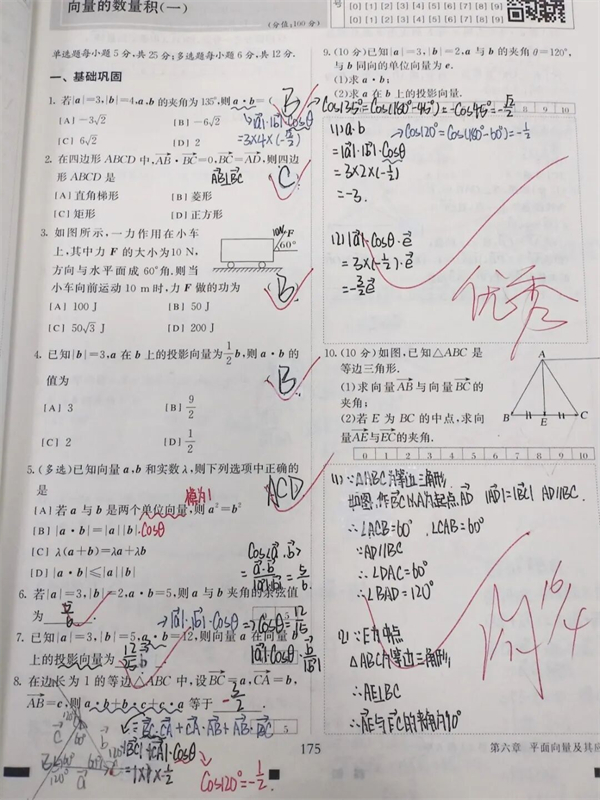 向量的数量积(一)
(分值:100分)
单选题每小题5分,共25分;多选题每小题6分,共12分.
一、基础巩固
1. 若|a|=3,|b|=4,a,b的夹角为135°,则a·b=( B
[A] -3√2 [B] -6√2
[C] 6√2 [D] 2
=|a|·|b|·cosθ
=3×4×(-√2/2)
2. 在四边形ABCD中,AB·BC=0,BC=AD,则四边
形ABCD是 AB⊥BC C
[A] 直角梯形 [B] 菱形
[C] 矩形 [D] 正方形
3. 如图所示,一力作用在小车
上,其中力F的大小为10 N,
方向与水平面成60°角.则当
小车向前运动10 m时,力F做的功为
10N F
60°
B
[A] 100 J [B] 50 J
[C] 50√3 J [D] 200 J
4. 已知|b|=3,a在b上的投影向量为1/2b,则a·b的
值为 B
[A] 3 [B] 9/2
[C] 2 [D] 1/2
5. (多选)已知向量a,b和实数λ,则下列选项中正确的
是 ACD
模为1
[A] 若a与b是两个单位向量,则a²=b²
[B] |a·b|=|a||b|.cosθ
[C] λ(a+b)=λa+λb
[D] |a·b|≤|a||b|
cos<a,b>
=a·b/|a||b|=5/6
6. 若|a|=3,|b|=2,a·b=5,则a与b夹角的余弦值
为 5/6 .
7. 已知|a|=3,|b|=5,a·b=12,则向量a在向量b
上的投影向量为
|a|cosθ·b/|b|
8. 在边长为1的等边△ABC中,设BC=a,CA=b,
AB=c,则a·b+b·c+c·a等于 -3/2 .
=BC·CA+CA·AB+AB·BC
=|BC|·|CA|·cosθ
=1×1×-1/2
cos120°=-1/2
175
9. (10分)已知|a|=3,|b|=2,a与b的夹角θ=120°,
与b同向的单位向量为e.
(1)求a·b;
(2)求a在b上的投影向量.
8 9 10
cos135°=cos(180°-45°)=-cos45°=-√2/2
(1) a·b
cos120°=cos(180°-60°)=-1/2
=|a|·|b|·cosθ
=3×2×(-1/2)
=-3.
(2) |a|·cosθ·e
=3×(-1/2)·e
=-3/2e
优秀
10. (10分)如图,已知△ABC是
等边三角形.
(1)求向量AB与向量BC的
夹角;
(2)若E为BC的中点,求向
量AE与EC的夹角.
A
B E C
0 1 2 3 4 5 6 7 8 9 10
(1) ∵△ABC为等边三角形
如图,作BC以A为起点,AD |AD|=|BC| AD∥BC.
∴∠ACB=60° ∠CAB=60°
∵AD∥BC
∴∠DAC=60°
∴∠BAD=120°
(2) ∵E为中点
△ABC为等边三角形
∴AE⊥BC
∴AE与EC的夹角为90°
第六章 平面向量及其应